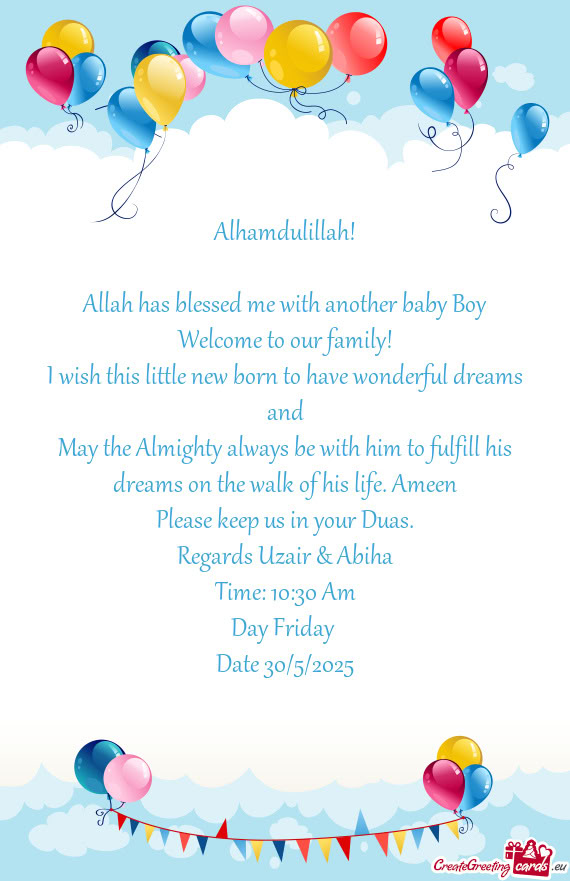 Alhamdulillah!
Allah has blessed me with another baby Boy
Welcome to our family!
I wish this little new born to have wonderful dreams
and
May the Almighty always be with him to fulfill his
dreams on the walk of his life. Ameen
Please keep us in your Duas.
Regards Uzair & Abiha
Time: 10:30 Am
Day Friday
Date 30/5/2025
CreateGreetingcards.eu